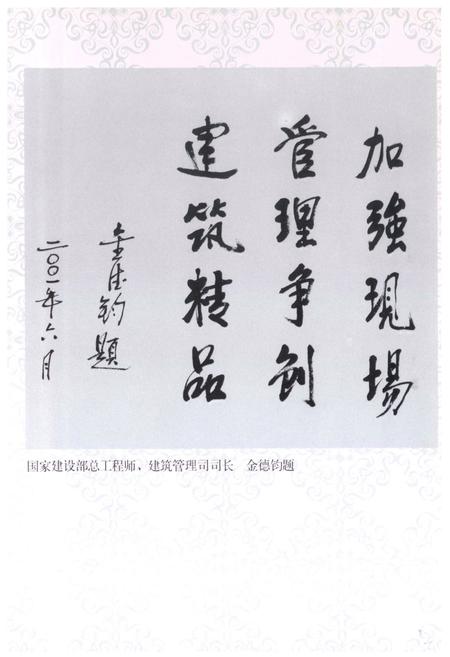 加強現場
管理争創
建筑精品
金德钧题
二〇〇一年六月
国家建设部总工程师、建筑管理司司长 金德钧题